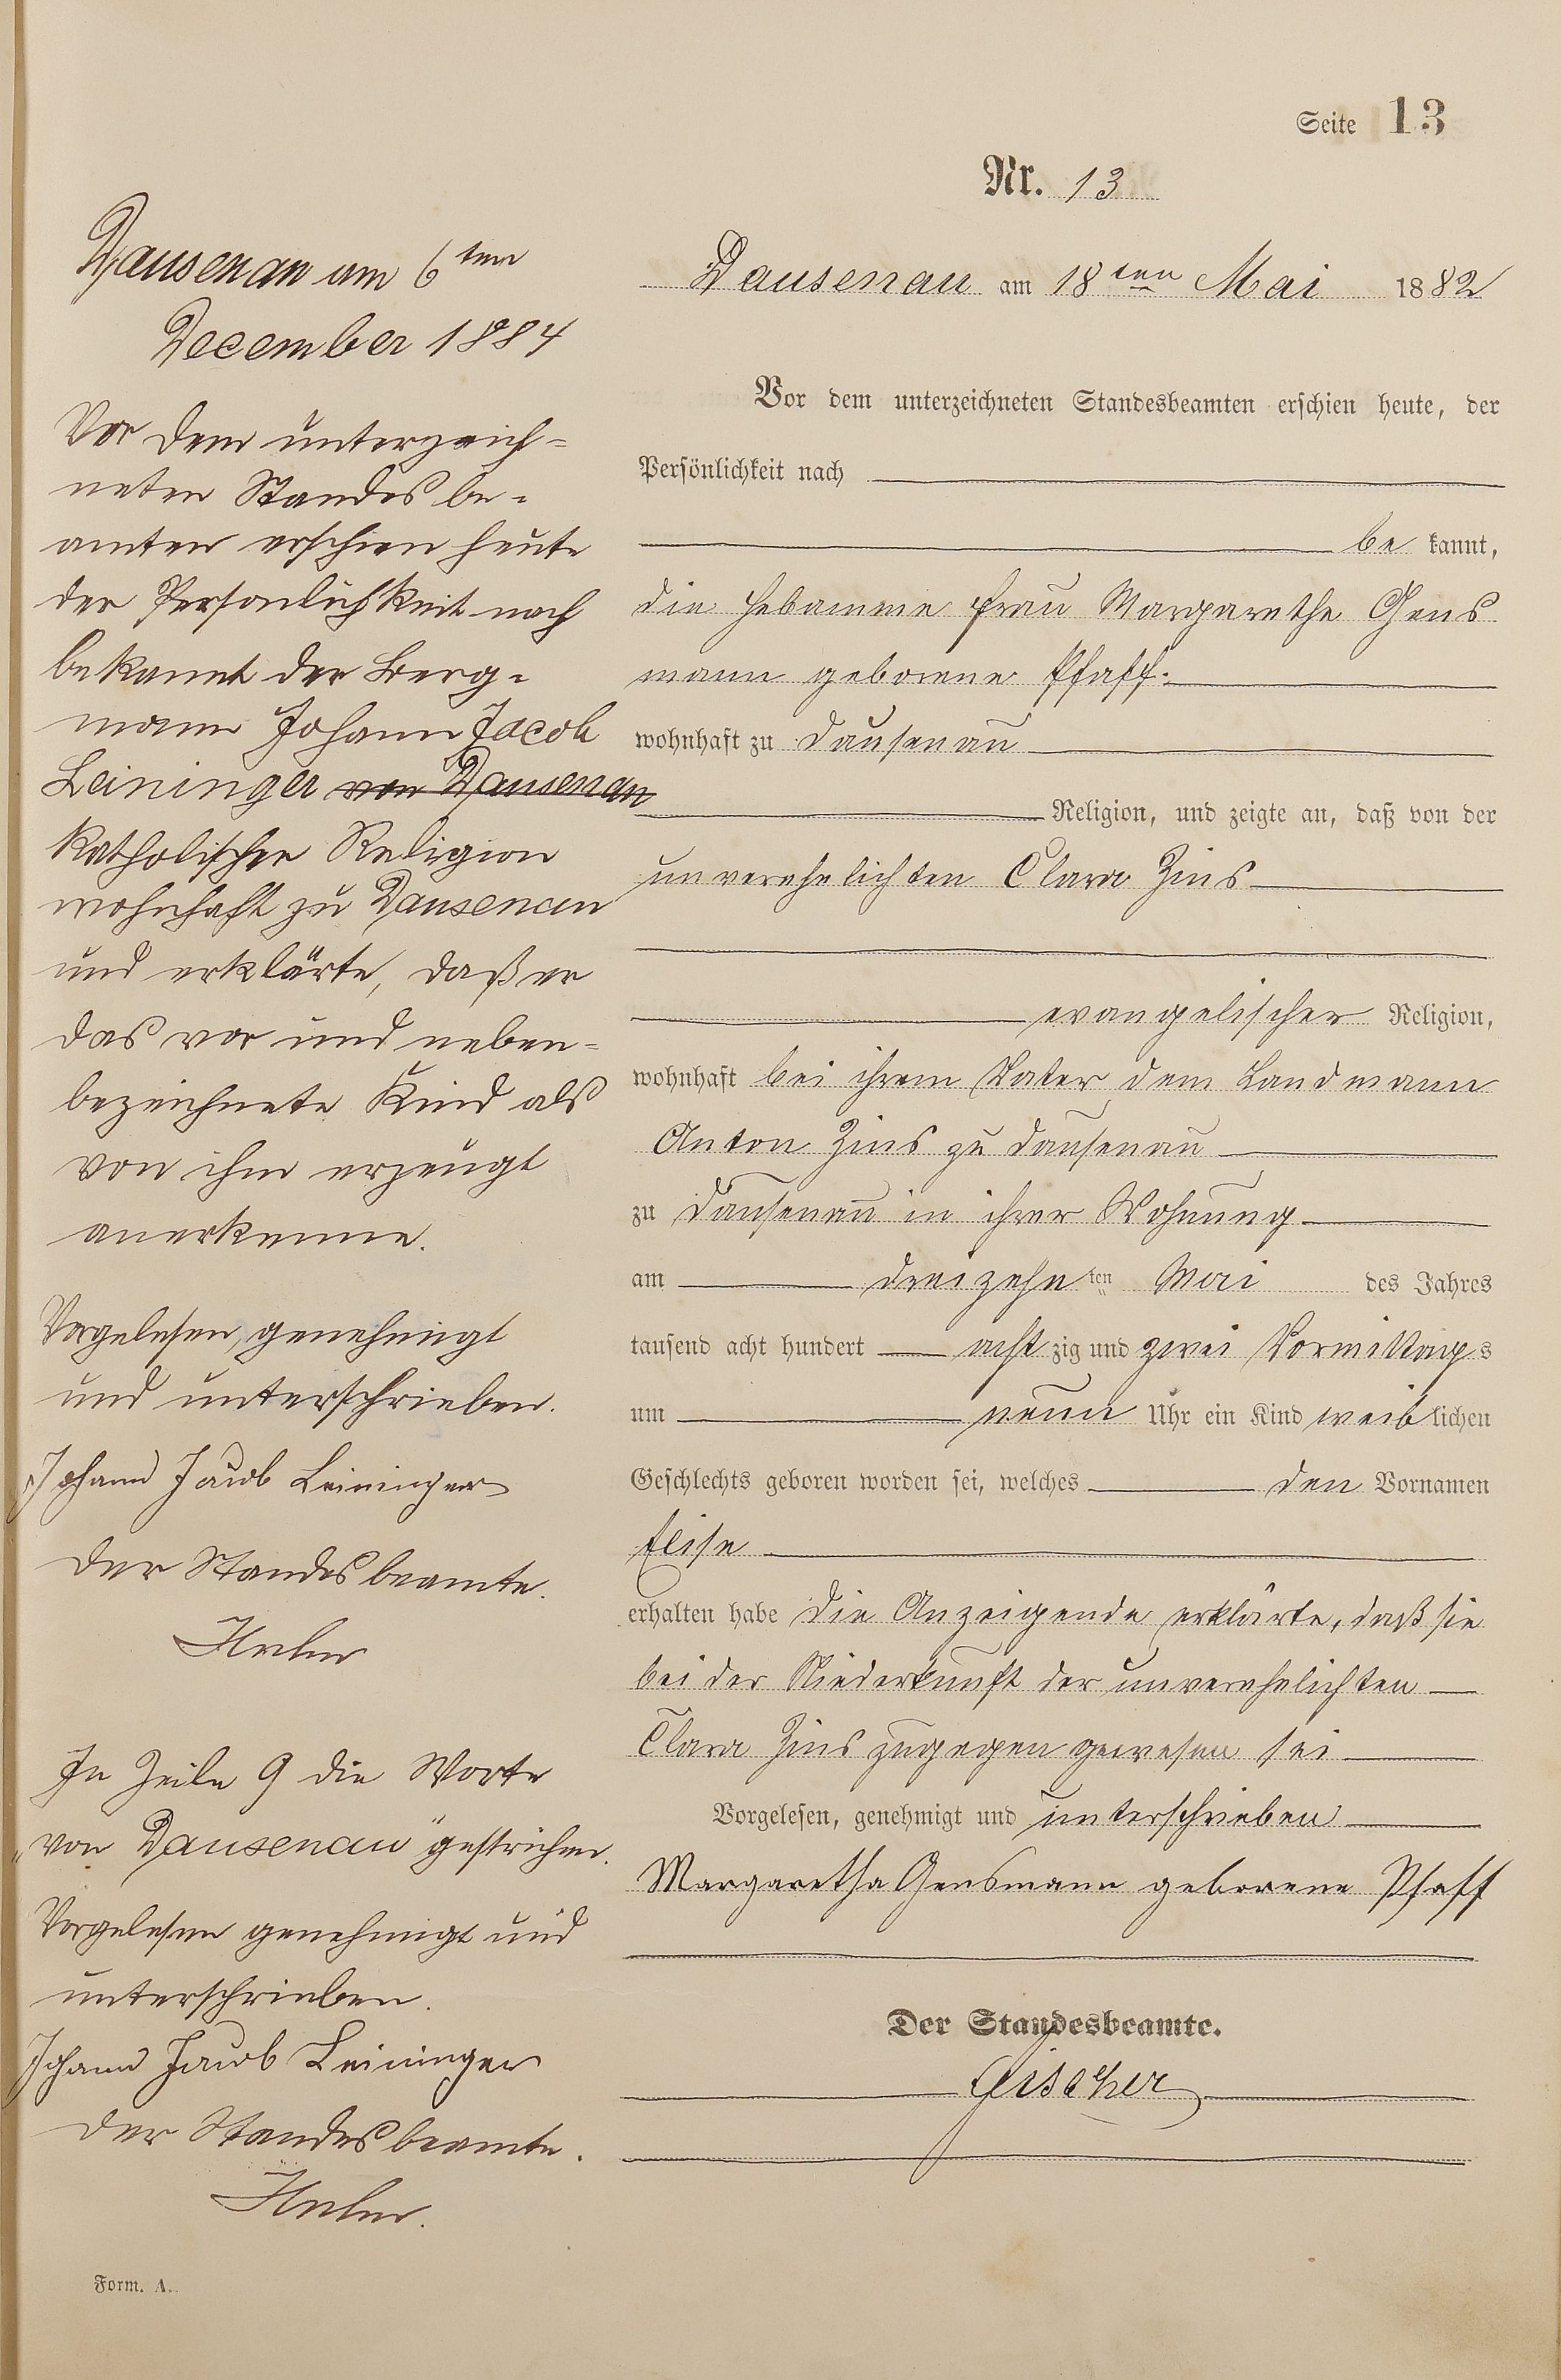 Seite 13
Nr. 13
Dausenau am 6ten
December 1884
Vor dem unterzeich=
neten Standesbe=
amten erschien heute
der Persönlichkeit nach
bekannt der Berg=
mann Johann Jacob
Leininger von Dausenau
katholischer Religion
wohnhaft zu Dausenau
und erklärte, daß er
das vor und neben=
bezeichnete Kind als
von ihm erzeugt
anerkenne.
Vorgelesen, genehmigt
und unterschrieben.
Johann Jacob Leininger
Der Standesbeamte.
In Zeile 9 die Worte
„von Dausenau" gestrichen.
Vorgelesen genehmigt und
unterschrieben.
Johann Jacob Leininger
Der Standesbeamte.
Form. A.
Dausenau am 18ten Mai 1882
Vor dem unterzeichneten Standesbeamten erschien heute, der
Persönlichkeit nach
be kannt,
die Hebamme Frau Margarethe Gens
mann geborene Pfaff.
wohnhaft zu Dausenau
Religion, und zeigte an, daß von der
unverehelichten Clara Zins
evangelischer Religion,
wohnhaft bei ihrem Vater dem Landmann
Anton Zins zu Dausenau
zu Dausenau in ihrer Wohnung
am dreizehn ten Mai des Jahres
tausend acht hundert acht zig und zwei Vormittags
um neun Uhr ein Kind weib lichen
Geschlechts geboren worden sei, welches den Vornamen
Elise
erhalten habe Die Anzeigende erklärte, daß sie
bei der Niederkunft der unverehelichten
Clara Zins zugegen gewesen sei
Vorgelesen, genehmigt und unterschrieben
Margaretha Gensmann geborene Pfaff
Der Standesbeamte.
Fischer